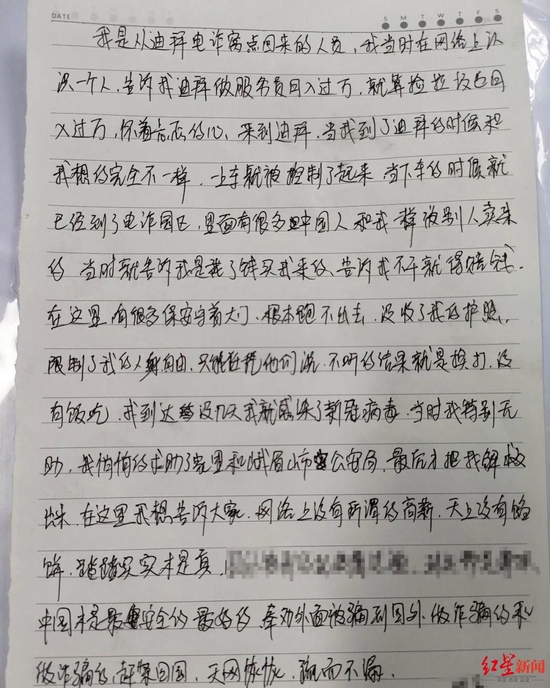 DATE
S M T W T F S
我是从迪拜电诈窝点回来的人员,我当时在网络上认
识一个人,告诉我迪拜做服务员日入过万,就算捡垃圾也日
入过万,怀着忐忑的心,来到迪拜,当我到了迪拜的时候和
我想的完全不一样,一上车就被控制了起来 当下车的时候就
已经到了电诈园区,里面有很多中国人和我一样被别人卖来
的 当时就告诉我是花了钱买我来的,告诉我不干就得赔钱.
在这里有很多保安守着大门,根本跑不出去,没收了我的护照,
限制了我的人身自由,只能他们说,不听的结果就是挨打,没
有饭吃,我到达没几天我就感染了新冠病毒,当时我特别无
助,我悄悄的求助了家里和峨眉山市公安局,最后才把我解救
出来,在这里我想告诉大家,网络上没有所谓的高薪,天上没有馅
饼,踏踏实实才是真,
中国才是最安全的最好的 奉劝外面被骗到国外做诈骗的和
做诈骗的,赶紧回国,天网恢恢,疏而不漏.
红星新闻